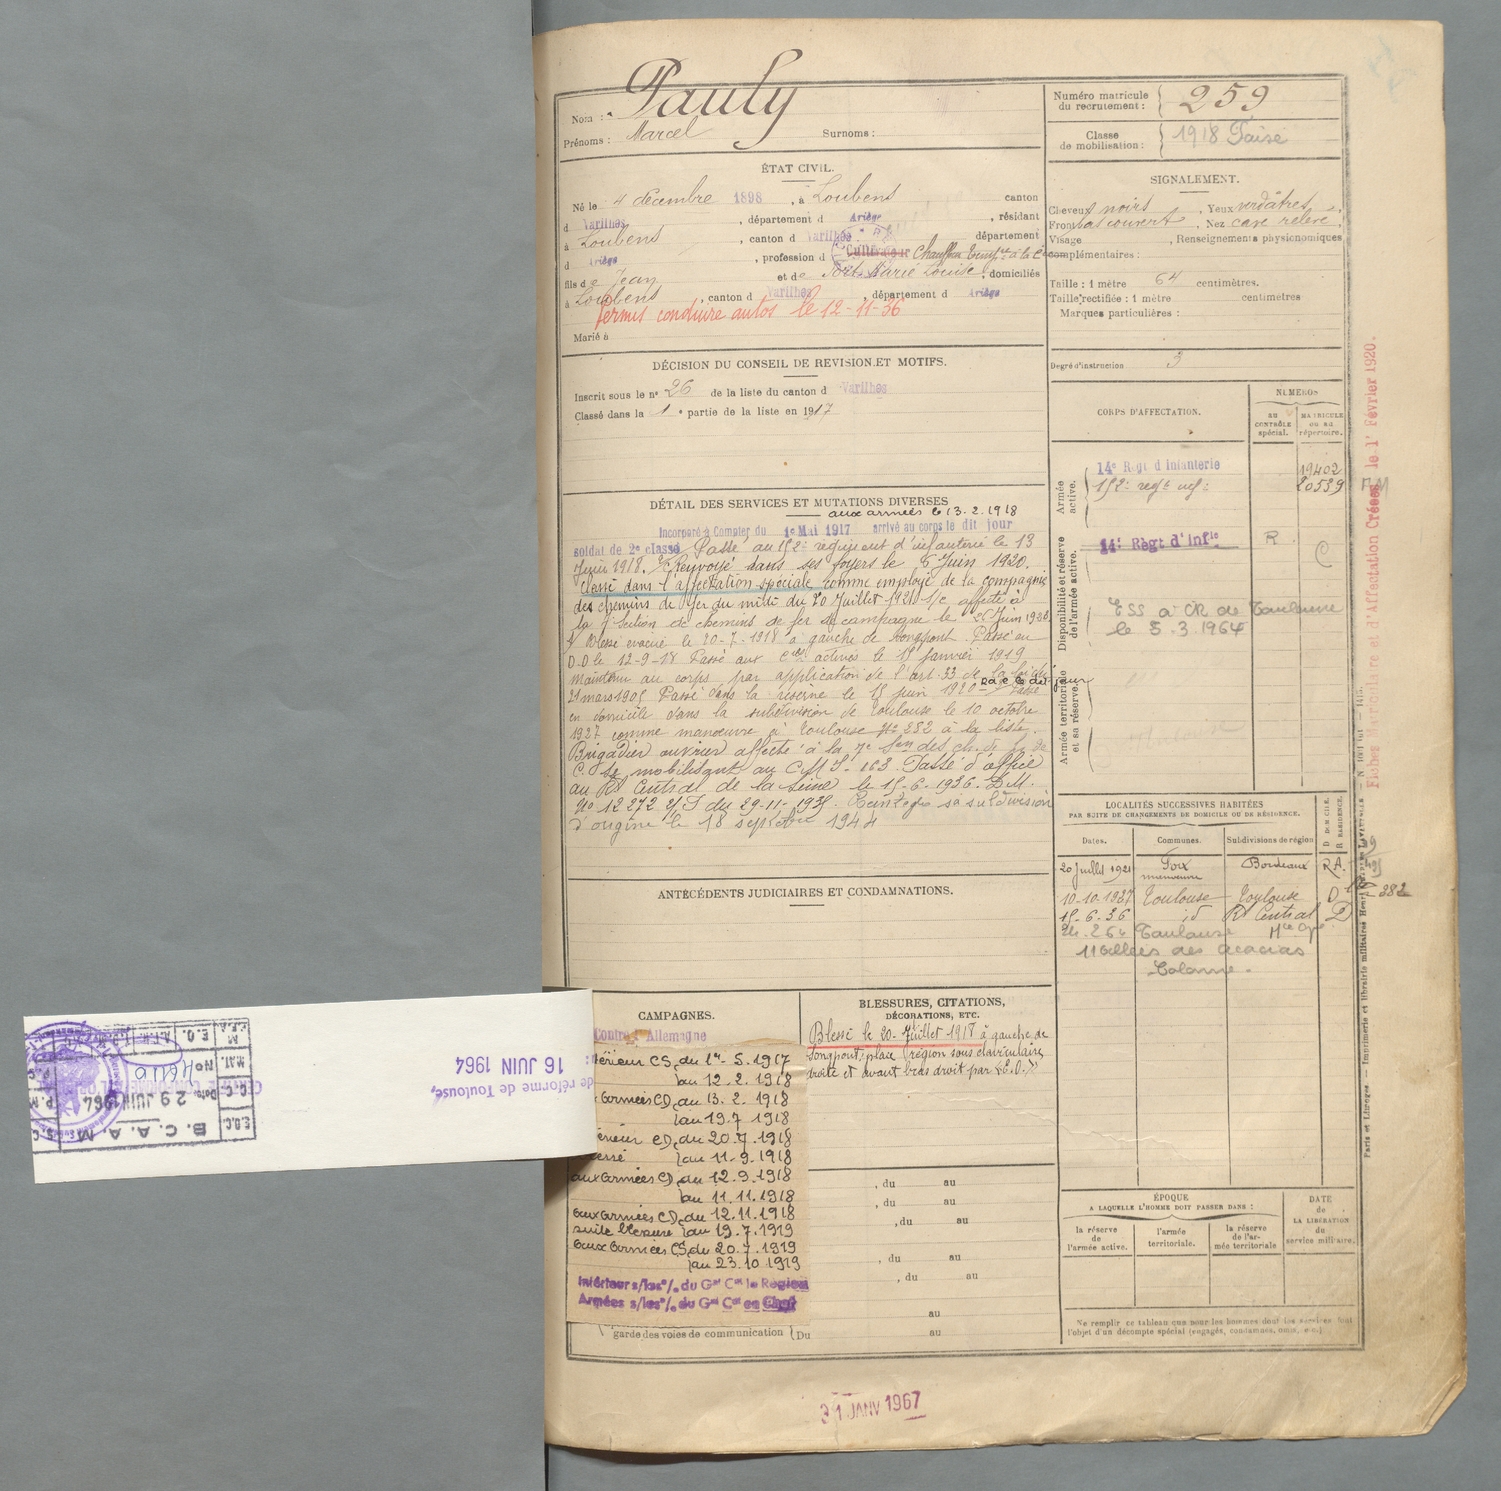 Nom : Pauly
Prénoms : Marcel Surnoms :
ÉTAT CIVIL.
Né le 4 décembre 1898, à Loubens canton
d Varilhes, département d Ariège, résidant
à Loubens, canton d Varilhes département
d Ariège, profession d Cultivateur Chauffeur
fils de Jean et de Fort Marie Louise, domiciliés
à Loubens, canton d Varilhes, département d Ariège
Permis conduire autos le 12-11-36
Marié à
DÉCISION DU CONSEIL DE REVISION ET MOTIFS.
Inscrit sous le n° 26 de la liste du canton d Varilhes
Classé dans la 1e partie de la liste en 1917
DÉTAIL DES SERVICES ET MUTATIONS DIVERSES
aux armées le 13.2.1918
Incorporé à Compter du 1e Mai 1917 arrivé au corps le dit jour
soldat de 2e classe Passé au 152e régiment d'infanterie le 13
février 1918. Renvoyé dans ses foyers le 6 Juin 1920.
Classé dans l'affectation spéciale comme employé de la compagnie
des chemins de fer du midi du 20 Juillet 1921 affecté à
la 7e Section de chemins de fer de campagne le 25 Juin 1926
Blessé évacué le 20-7-1918 à gauche de Longpont. Passé au
D.D le 12-9-18 Passé aux activés le 15 Janvier 1919
Maintenu au corps par application de l'art. 33 de la loi du
21 mars 1905 Passé dans la réserve le 15 juin 1920 Passé
en domicile dans la subdivision de Toulouse le 10 octobre
1927 comme manoeuvre à Toulouse N° 282 à la liste.
Brigadier ouvrier affecté à la 7e Son des ch. de fer de
C. Se mobilisant au C.M.I. 163. Passé d'office
au Rt Central de la Seine le 15-6-1936. D.M.
No 12272 du 29-11-1935. Réintégré sa subdivision
d'origine le 18 septembre 1944
ANTÉCÉDENTS JUDICIAIRES ET CONDAMNATIONS.
CAMPAGNES.
Contre l'Allemagne
térieur CS, du 1er-5.1917
au 12.2.1918
x Armées CD, du 13.2.1918
au 19.7.1918
érieur CD, du 20.7.1918
essé au 11-9.1918
aux Armées CD, du 12.9.1918
au 11.11.1918
aux Armées CD, du 12.11.1918
suite blessure au 19.7.1919
aux Armées CS, du 20.7.1919
au 23.10.1919
Intérieur s/les °/. du Gal Cat la Région
Armées s/les °/. du Gal Cat en Chef
garde des voies de communication Du
BLESSURES, CITATIONS,
DÉCORATIONS, ETC.
Blessé le 20-Juillet 1918 à gauche de
Longpont; plaie région sous claviculaire
droite et avant bras droit par "E.O."
, du au
, du au
, du au
, du au
, du au
au
au
Numéro matricule
du recrutement : 259
Classe
de mobilisation : 1918
SIGNALEMENT.
Cheveux noirs, Yeux verdâtres,
Front bas couvert, Nez cave relevé,
Visage, Renseignements physionomiques
complémentaires :
Taille : 1 mètre 64 centimètres.
Taille rectifiée : 1 mètre centimètres
Marques particulières :
Degré d'instruction 3
CORPS D'AFFECTATION.
NUMÉROS
AU CONTRÔLE spécial.
MATRICULE ou au répertoire.
Armée active.
14e Régt d'Infanterie 19402
152e regt inf. 20539
Disponibilité et réserve de l'armée active.
14e Règt d'Infie R C
ESS à CR de Toulouse
le 5.3.1964
Armée territoriale et sa réserve.
LOCALITÉS SUCCESSIVES HABITÉES
PAR SUITE DE CHANGEMENTS DE DOMICILE OU DE RÉSIDENCE.
Dates. Communes. Subdivisions de région D DOMICILE. R RÉSIDENCE.
20 Juillet 1921 Foix Bordeaux R.A.
manoeuvre
10-10-1927 Toulouse Toulouse D 282
15-6-36 id Rt Central D
Toulouse
11 allées des Acacias
ÉPOQUE
A LAQUELLE L'HOMME DOIT PASSER DANS :
la réserve de l'armée active.
l'armée territoriale.
la réserve de l'armée territoriale
DATE de LA LIBÉRATION du service militaire.
Ne remplir ce tableau que pour les hommes dont les services font
l'objet d'un décompte spécial (engagés, condamnés, omis, etc.)
Fiches Matriculaire et d'Affectation Créées le 1r Février 1920.
Paris et Limoges. — Imprimerie et librairie militaires Henri CHARLES-LAVAUZELLE
31 JANV 1967
de réforme de Toulouse,
16 JUIN 1964
B.C.A.A.M.
Date 29 JUIN 1964
No